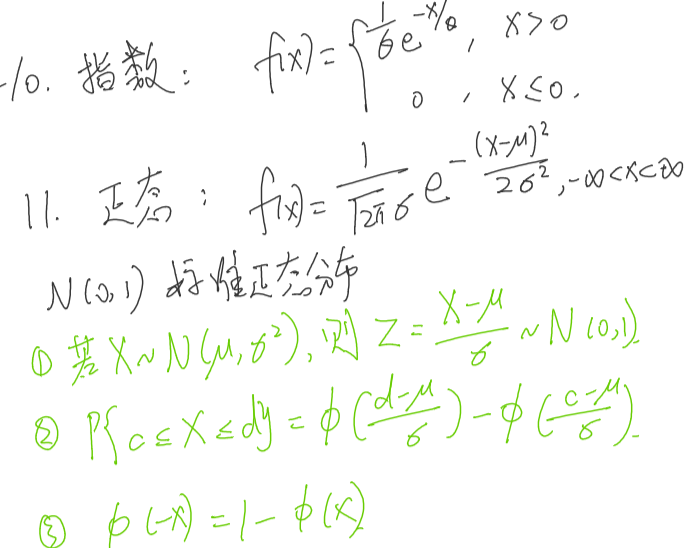 10. 指数： f(x)={ 1/θ e^{-x/θ}, x>0
0 , x≤0.
11. 正态： f(x)= 1/(√2π σ) e^{-(x-μ)²/2σ²}, -∞<x<∞
N(0,1) 标准正态分布
① 若X~N(μ,σ²),则 Z= (X-μ)/σ ~N(0,1)
② P{c≤X≤d}=φ((d-μ)/σ)-φ((c-μ)/σ)
③ φ(-x)=1-φ(x)